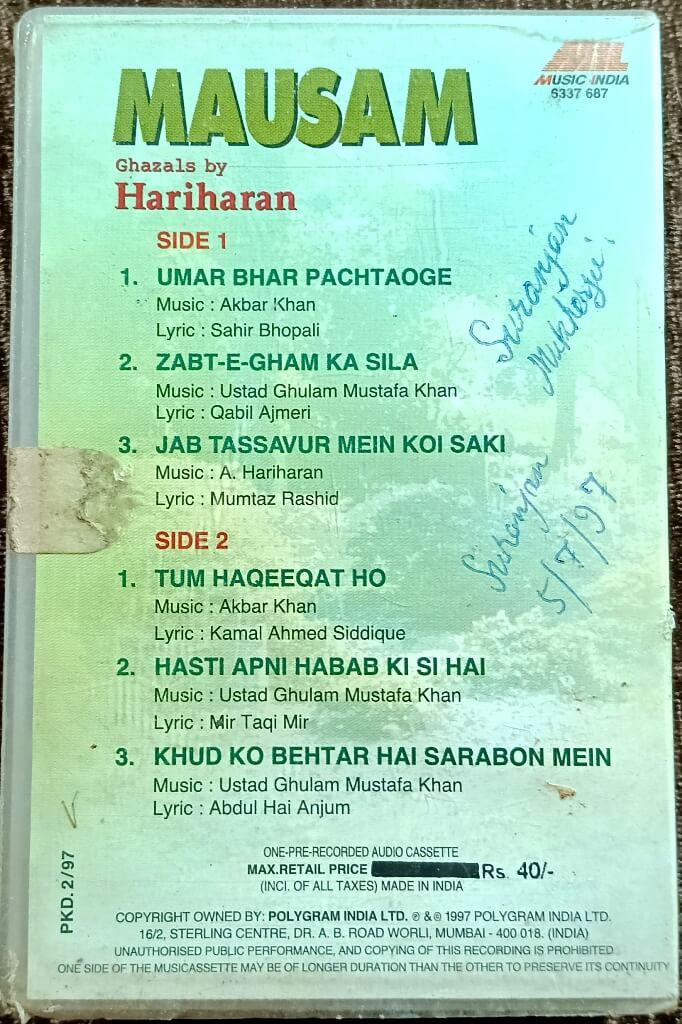 MAUSAM
MUSIC INDIA
6337 687
Ghazals by
Hariharan
SIDE 1
1. UMAR BHAR PACHTAOGE
Music : Akbar Khan
Lyric : Sahir Bhopali
2. ZABT-E-GHAM KA SILA
Music : Ustad Ghulam Mustafa Khan
Lyric : Qabil Ajmeri
3. JAB TASSAVUR MEIN KOI SAKI
Music : A. Hariharan
Lyric : Mumtaz Rashid
SIDE 2
1. TUM HAQEEQAT HO
Music : Akbar Khan
Lyric : Kamal Ahmed Siddique
2. HASTI APNI HABAB KI SI HAI
Music : Ustad Ghulam Mustafa Khan
Lyric : Mir Taqi Mir
3. KHUD KO BEHTAR HAI SARABON MEIN
Music : Ustad Ghulam Mustafa Khan
Lyric : Abdul Hai Anjum
Suranjan
Mukherji.
Suranjan
5/7/97
PKD. 2/97
ONE-PRE-RECORDED AUDIO CASSETTE
MAX.RETAIL PRICE Rs. 40/-
(INCl. OF ALL TAXES) MADE IN INDIA
COPYRIGHT OWNED BY: POLYGRAM INDIA LTD. ℗ & © 1997 POLYGRAM INDIA LTD.
16/2, STERLING CENTRE, DR. A. B. ROAD WORLI, MUMBAI - 400 018. (INDIA)
UNAUTHORISED PUBLIC PERFORMANCE, AND COPYING OF THIS RECORDING IS PROHIBITED
ONE SIDE OF THE MUSICASSETTE MAY BE OF LONGER DURATION THAN THE OTHER TO PRESERVE ITS CONTINUITY